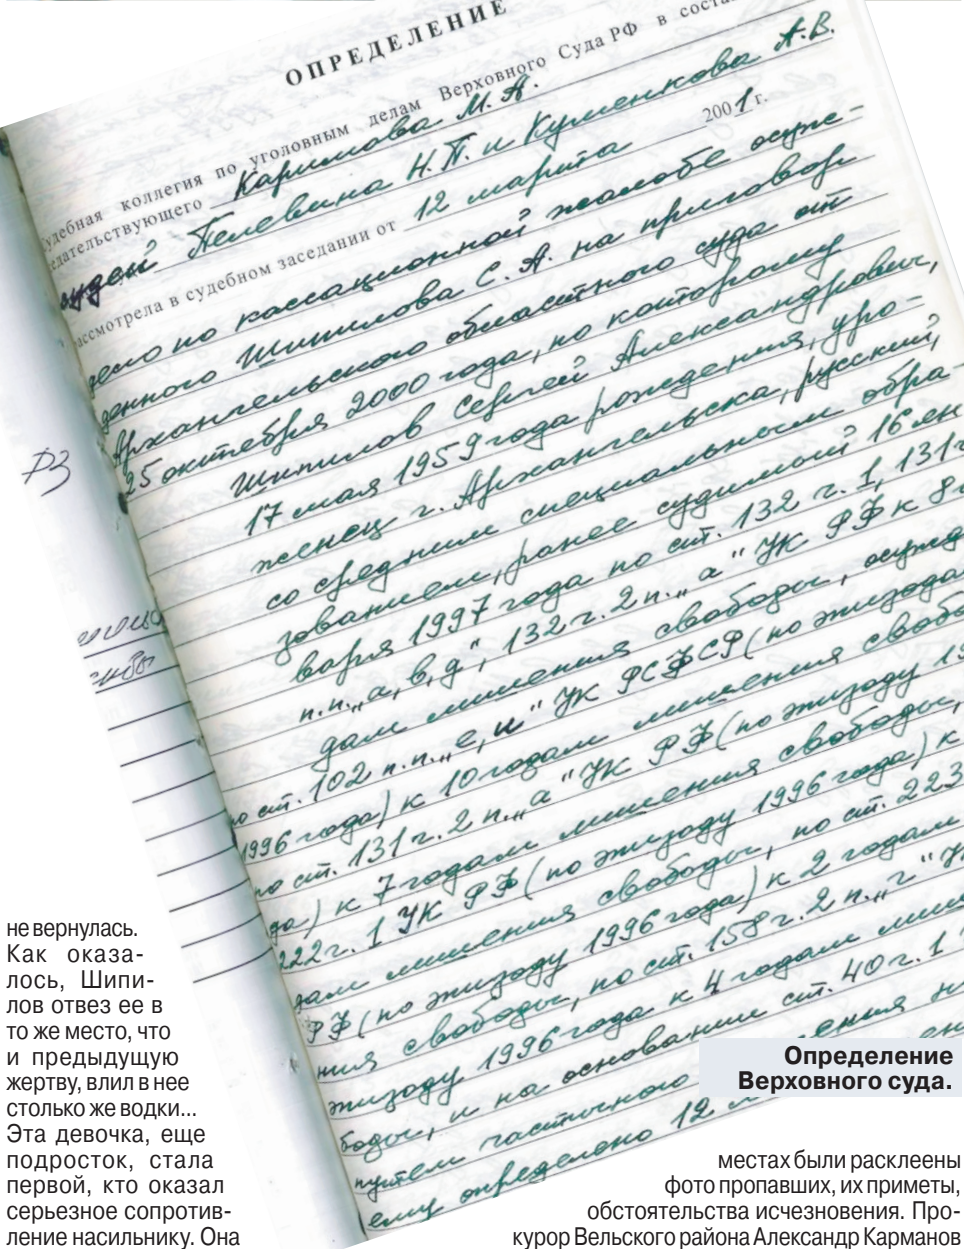 ОПРЕДЕЛЕНИЕ
удебная коллегия по уголовным делам Верховного Суда РФ в соста
едательствующего Каримова М. А.
удей Пелевина Н.П. и Куменкова А.В.
ассмотрела в судебном заседании от 12 марта 2001 г.
дело по кассационной жалобе осуж-
денного Шипилова С. А. на приговор
Архангельского областного суда от
25 октября 2000 года, по которому
Шипилов Сергей Александрович,
17 мая 1959 года рождения, уро-
женец г. Архангельска, русский,
со средним специальным обра-
зованием, ранее судимый 16 ян
варя 1997 года по ст. 132 ч. 1, 131 ч
п.п. „а, в, д", 132 ч. 2 п. „а" УК РФ к 8
дам лишения свободы, осужд
о ст. 102 п.п. „е, и" УК РСФСР (по эпизода
1996 года) к 10 годам лишения свобо
по ст. 131 ч. 2 п. „а" УК РФ (по эпизоду 19
да) к 7 годам лишения свободы,
222 ч. 1 УК РФ (по эпизоду 1996 года) к
дам лишения свободы, по ст. 223
РФ (по эпизоду 1996 года) к 2 годам
ния свободы, по ст. 158 ч. 2 п. „г" УК
эпизоду 1996 года к 4 годам лише
боды, и на основании ст. 40 ч. 1
путем частичного
ему определено 12
РЗ
не вернулась.
Как оказа-
лось, Шипи-
лов отвез ее в
то же место, что
и предыдущую
жертву, влил в нее
столько же водки...
Эта девочка, еще
подросток, стала
первой, кто оказал
серьезное сопротив-
ление насильнику. Она
Определение
Верховного суда.
местах были расклеены
фото пропавших, их приметы,
обстоятельства исчезновения. Про-
курор Вельского района Александр Карманов